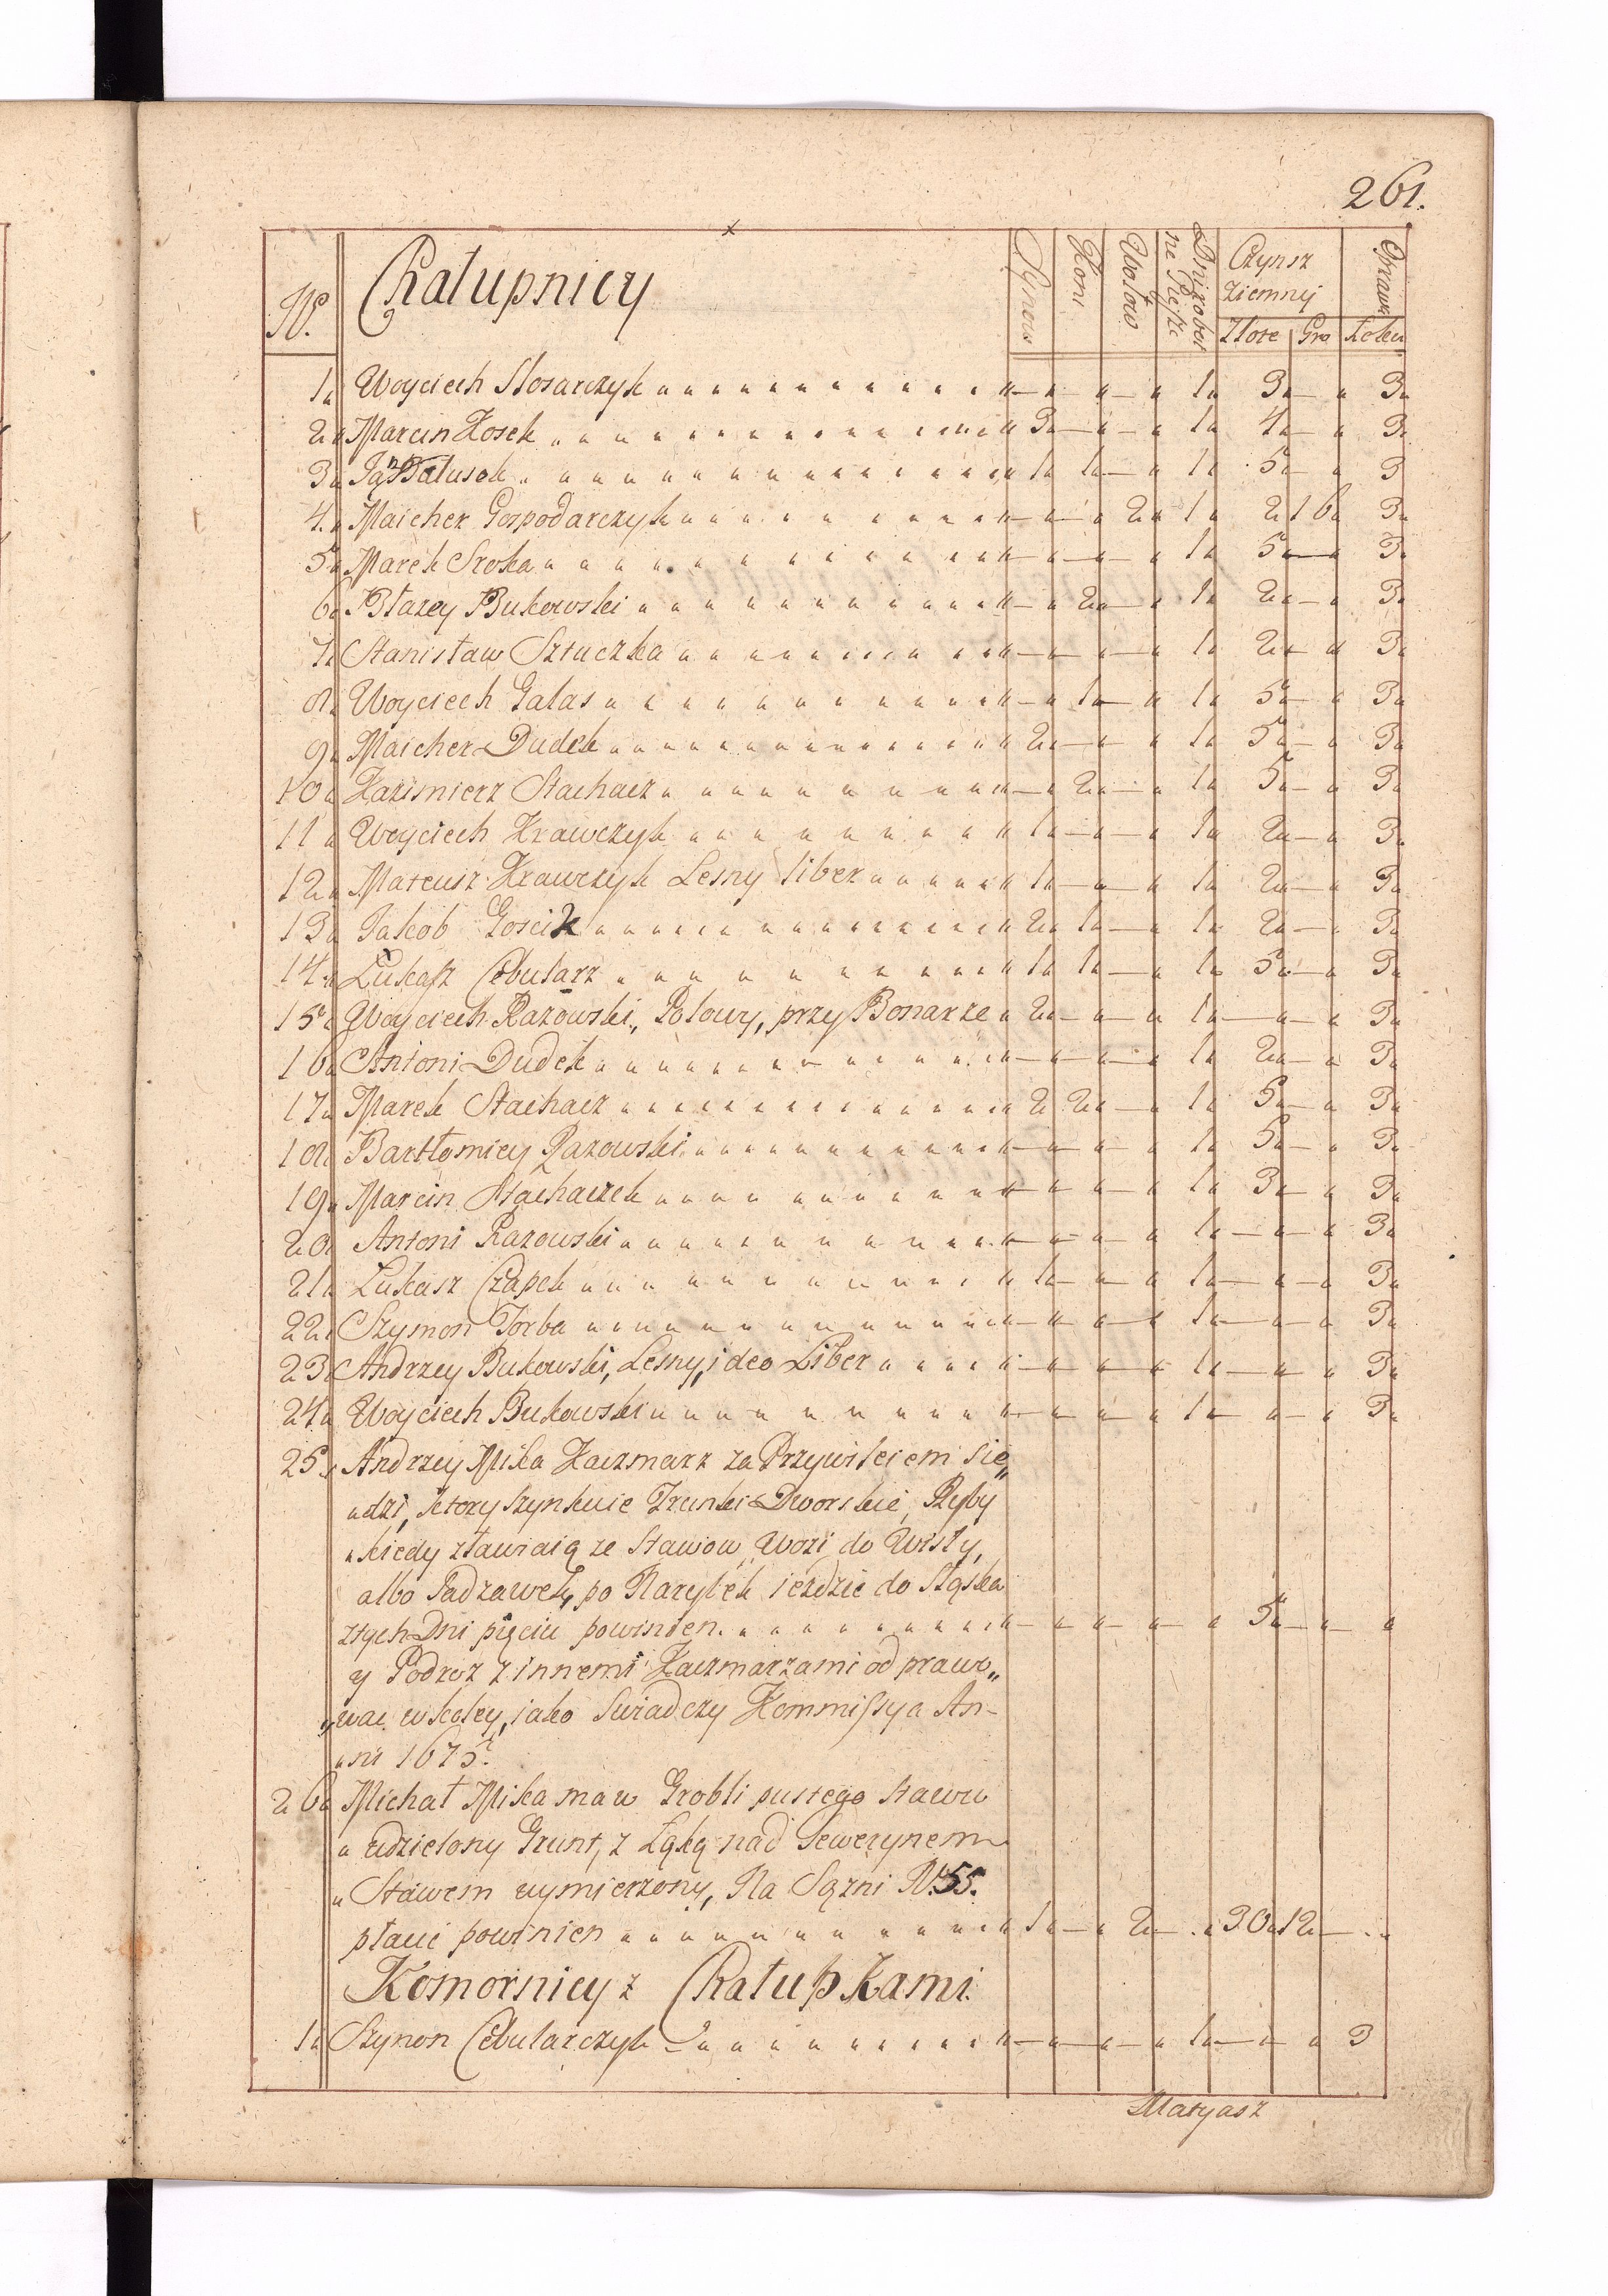 261.
No. Chałupnicy Synow Koni Wołow Dni robot ne Piesze Czynsz Ziemny Złote Gro Oprawa Łokci
1 Woyciech Slosarczyk 1 3 3
2 Marcin Kosek 3 1 4 3
3 Jan Bałusek 1 1 1 5 3
4 Maicher Gospodarczyk 2 1 2 16 3
5 Marek Sroka 1 5 3
6 Błazey Bukowski 2 1 2 3
7 Stanisław Sztuczka 1 2 3
8 Woyciech Galas 1 1 5 3
9 Maicher Dudek 2 1 5 3
10 Kazimierz Stachacz 2 1 5 3
11 Woyciech Krawczyk 1 1 2 3
12 Mateusz Krawczyk Lesny liber 1 1 2 3
13 Jakob Goscik 2 1 1 2 3
14 Łukasz Cebularz 1 1 1 5 3
15 Woyciech Razowski, Polowy, przy Bonarze 2 1 3
16 Antoni Dudek 1 2 3
17 Marek Stachacz 2 2 1 5 3
18 Bartłomiey Razowski 1 5 3
19 Marcin Stachaczek 1 3 3
20 Antoni Razowski 1 3
21 Łukasz Czapek 1 1 3
22 Szymon Torba 1 3
23 Andrzey Bukowski, Lesny, ideo Liber 1 3
24 Woyciech Bukowski 1 3
25 Andrzey Mika Kaczmarz za Przywileiem sie„
„dzi, ktory szynkuie Trunki Dworskie, Ryby
„kiedy zławiaią ze Stawow Wozi do Wisły,
albo Sadzawek, po Narybek iezdzic do Sląska
ztych Dni pięciu powinien 5
y Podroz z innemi Kaczmarzami odprawo„
„wac w koley, iako swiadczy Kommissya An-
„ni 1675.
26 Michał Mika ma w Grobli pustego stawu
„udzielony Grunt, z Łąką nad Sewerynem
„Stawem wymierzony, Na Sązni No. 55.
płacic powinien 1 2 30 12
Komornicy z Chałupkami
1 Szymon Cebularczyk 1 3
Matyasz